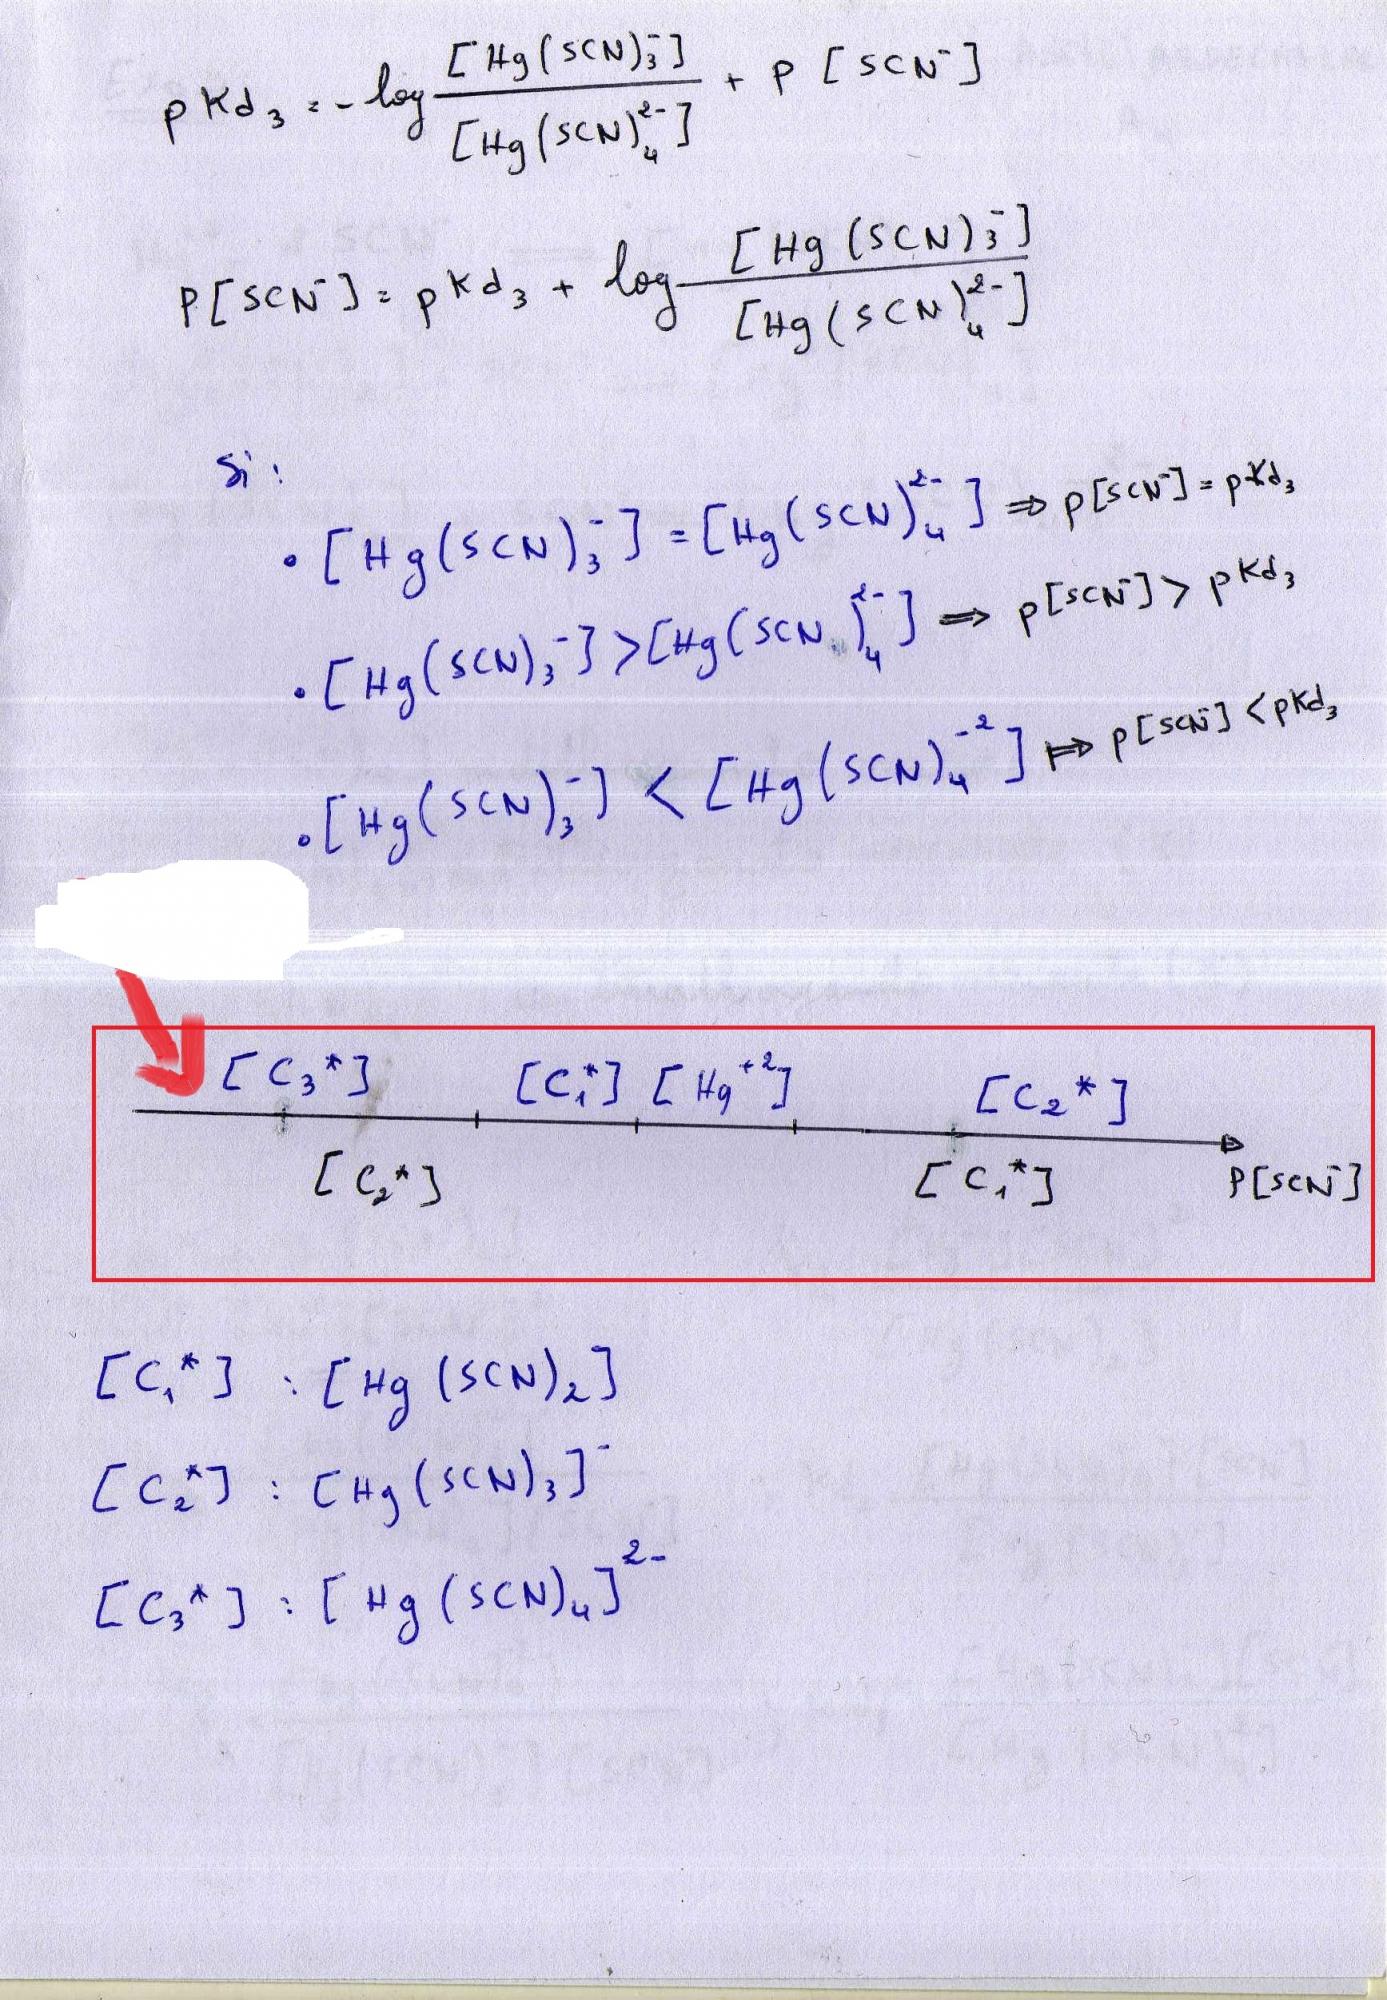 pKd₃ = -log [Hg(SCN)₃⁻] / [Hg(SCN)₄²⁻] + p[SCN⁻]
P[SCN⁻] = pKd₃ + log [Hg(SCN)₃⁻] / [Hg(SCN)₄²⁻]
Si :
• [Hg(SCN)₃⁻] = [Hg(SCN)₄²⁻] ⇒ p[SCN⁻] = pKd₃
• [Hg(SCN)₃⁻] > [Hg(SCN)₄²⁻] ⇒ p[SCN⁻] > pKd₃
• [Hg(SCN)₃⁻] < [Hg(SCN)₄⁻²] ⇒ p[SCN⁻] < pKd₃
[C₃*] [C₁*] [Hg⁺²] [C₂*]
[C₂*] [C₁*] P[SCN⁻]
[C₁*] : [Hg(SCN)₂]
[C₂*] : [Hg(SCN)₃]⁻
[C₃*] : [Hg(SCN)₄]²⁻